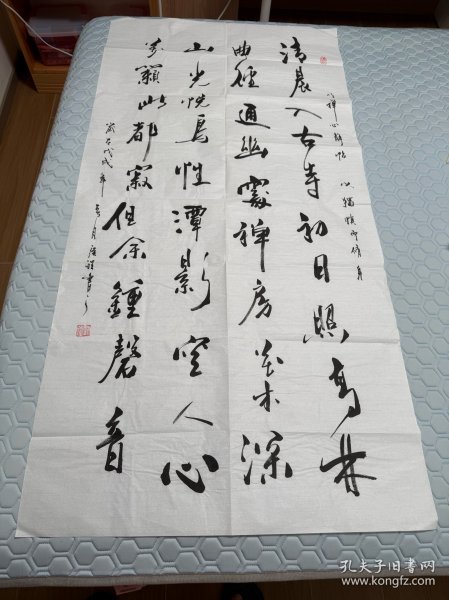 清晨入古寺初日照高林
曲径通幽处禅房花木深
山光悦鸟性潭影空人心
万籁此都寂但余钟磬音
岁在戊戌年
孔夫子旧书网
www.kongfz.com